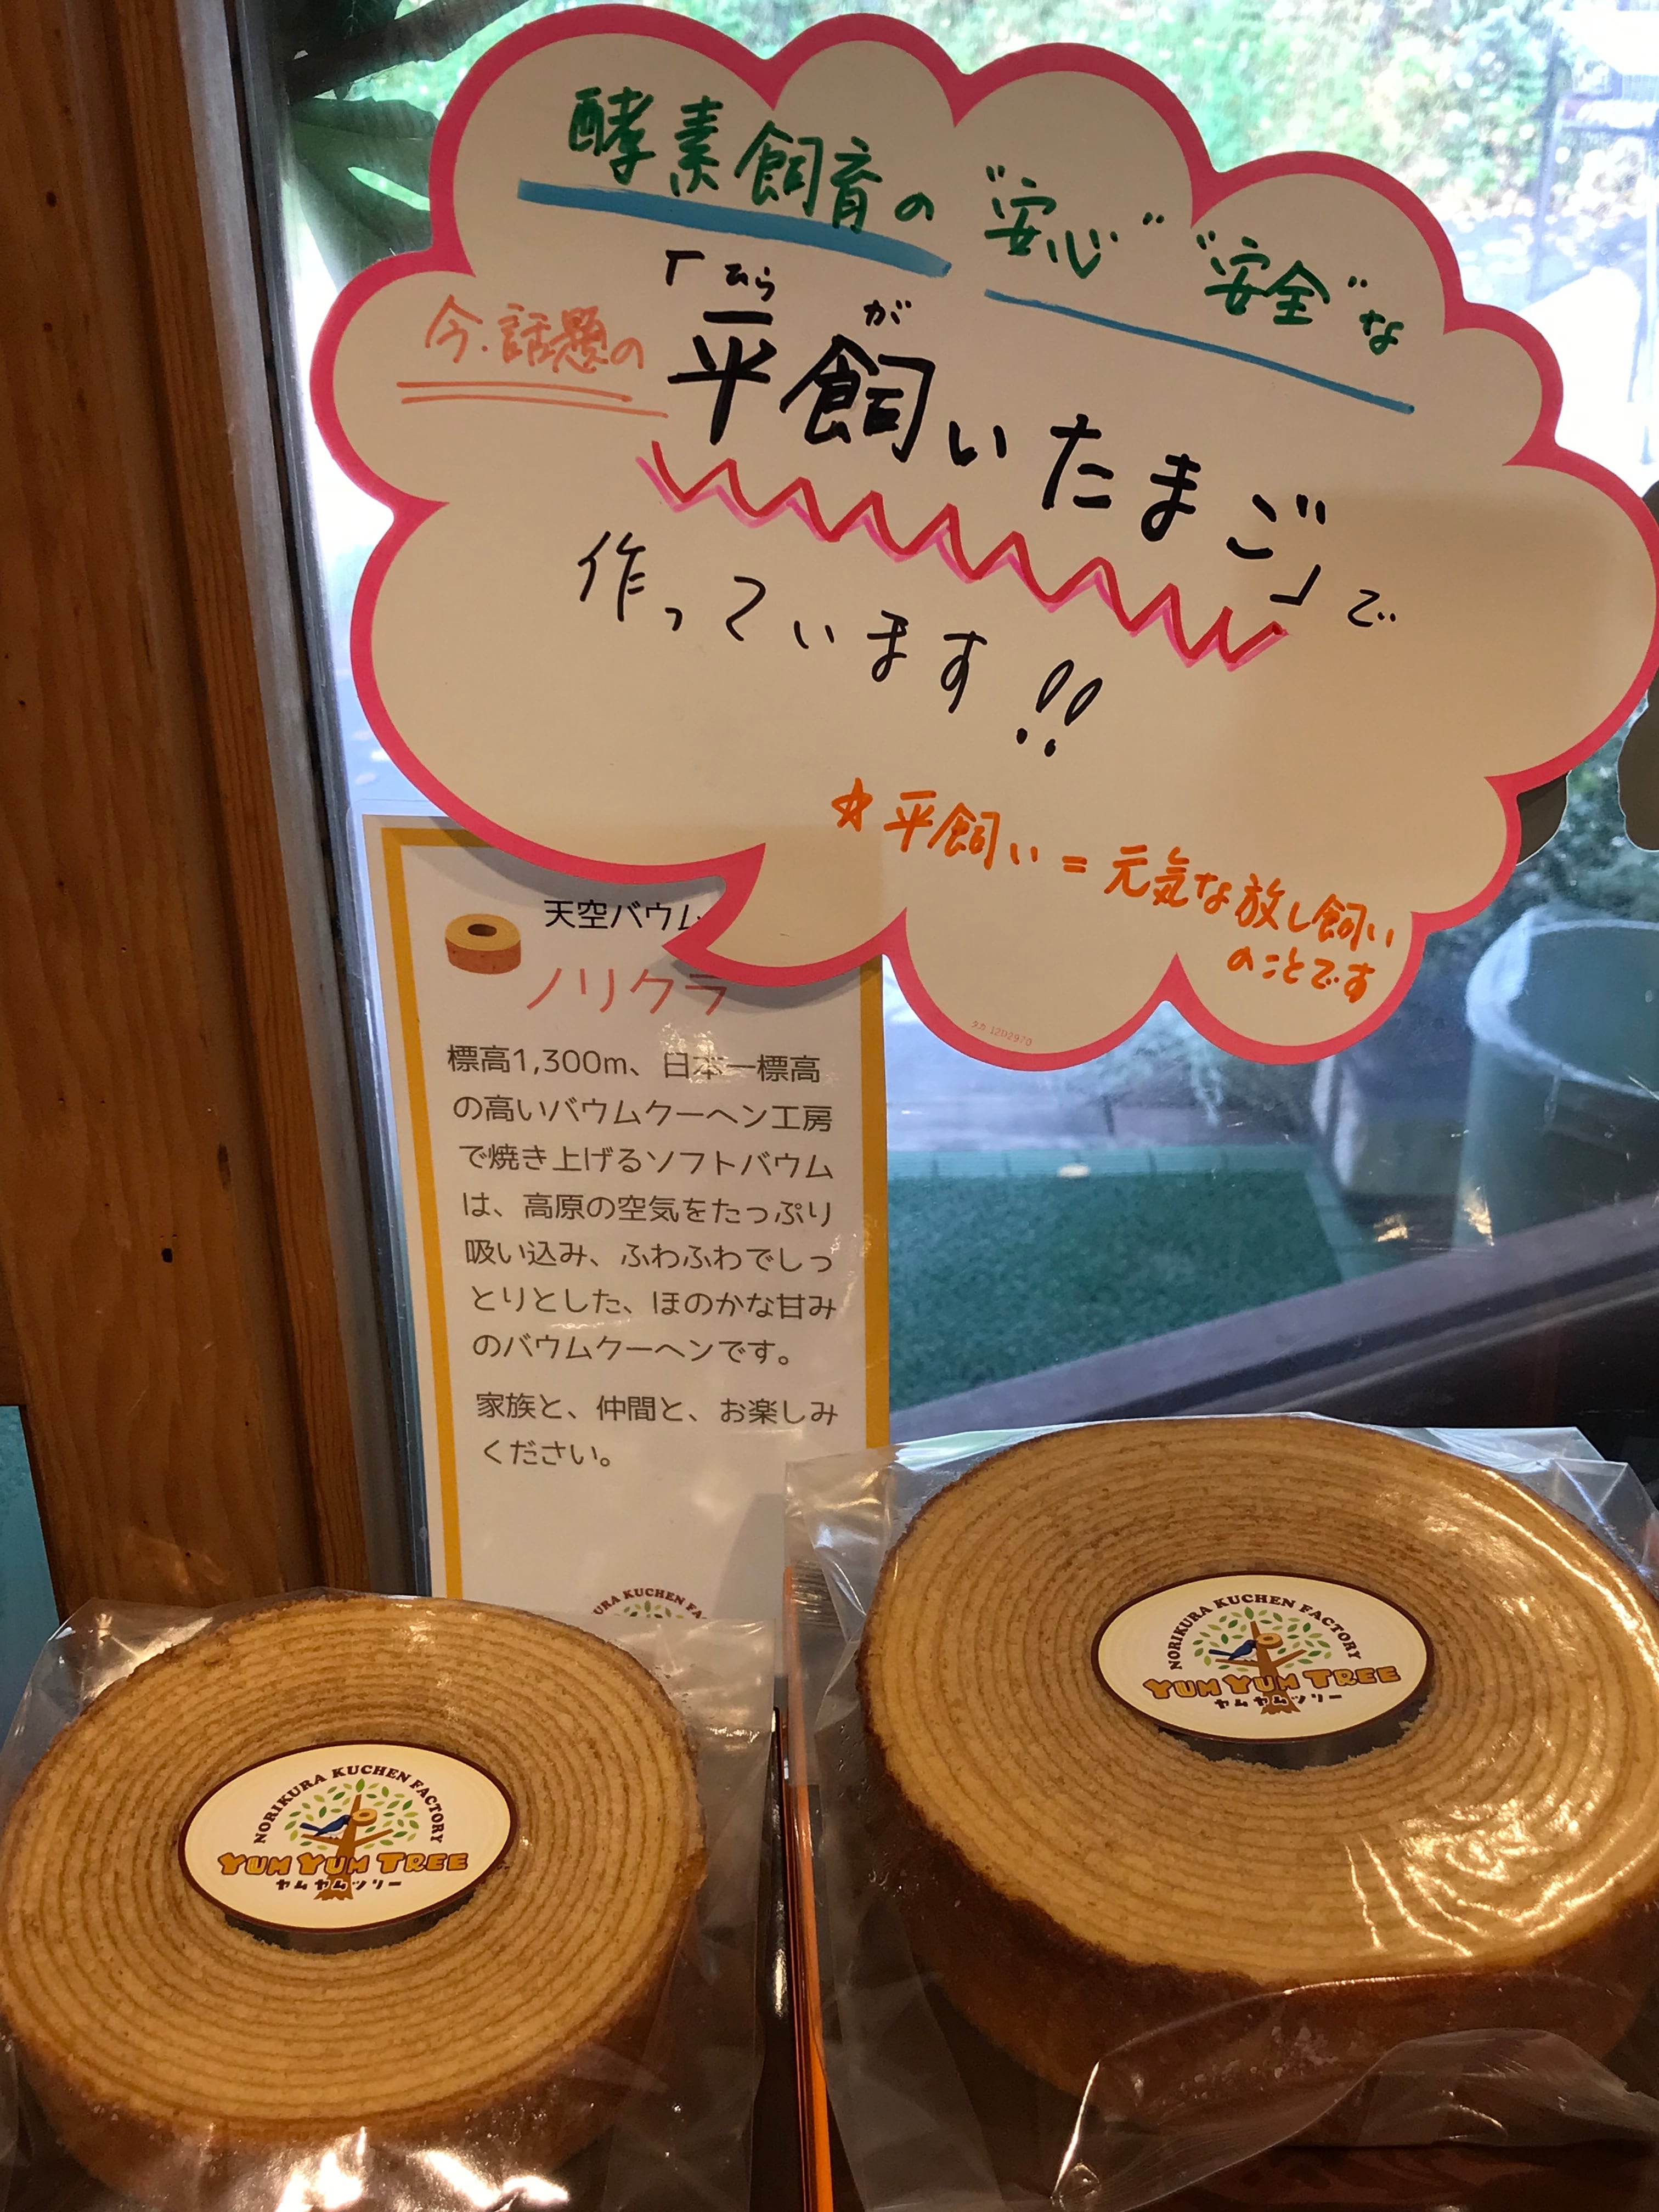 酵素飼育の "安心" "安全" な
今、話題の
「ひら が
平飼いたまご」で
作っています!!
☆平飼い=元気な放し飼い
のことです
タカ 12D2970
天空バウム
ノリクラ
標高1,300m、日本一標高
の高いバウムクーヘン工房
で焼き上げるソフトバウム
は、高原の空気をたっぷり
吸い込み、ふわふわでしっ
とりとした、ほのかな甘み
のバウムクーヘンです。
家族と、仲間と、お楽しみ
ください。
URA KUCHEN FA
NORIKURA KUCHEN FACTORY
YUM YUM TREE
ヤムヤムツリー
NORIKURA KUCHEN FACTORY
YUM YUM TREE
ヤムヤムツリー